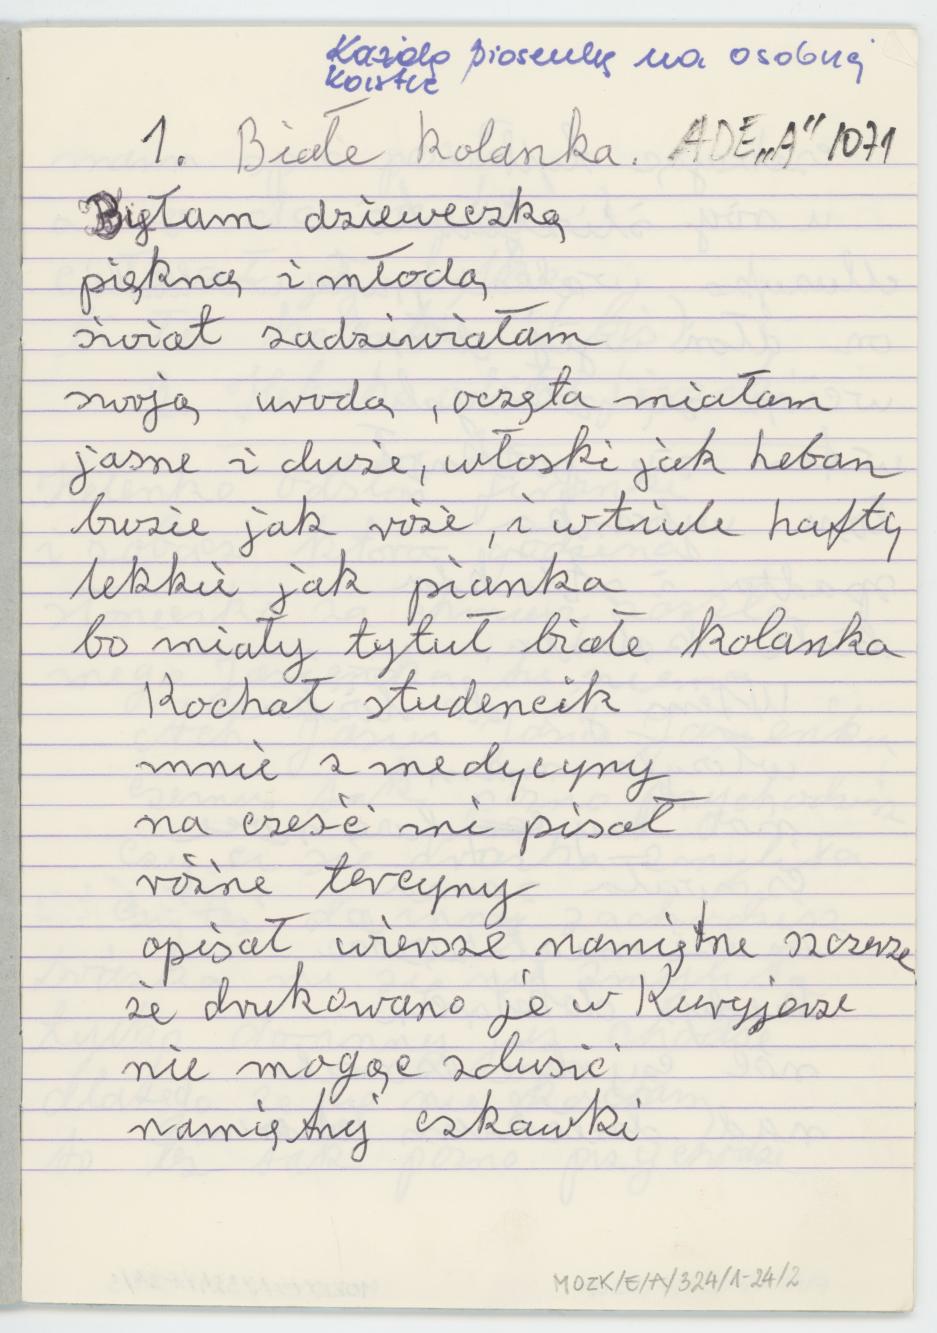 Każdą piosenkę na osobnej
kartce
1. Białe kolanka. ADE „A" 1071
Byłam dzieweczką
piękną i młodą
świat zadziwiałam
swoją urodą, oczęta miałam
jasne i duże, włoski jak heban
buzie jak róże, i w tiule hafty
lekkie jak pianka
bo miały tytuł białe kolanka
Kochał studencik
mnie z medycyny
na cześć mi pisał
różne tercyny
opisał wiersze namiętne szczerze
że drukowano je w Kuryjerze
nie mogąc zdusić
namiętnej czkawki
MOZK/E/A/324/1-24/2